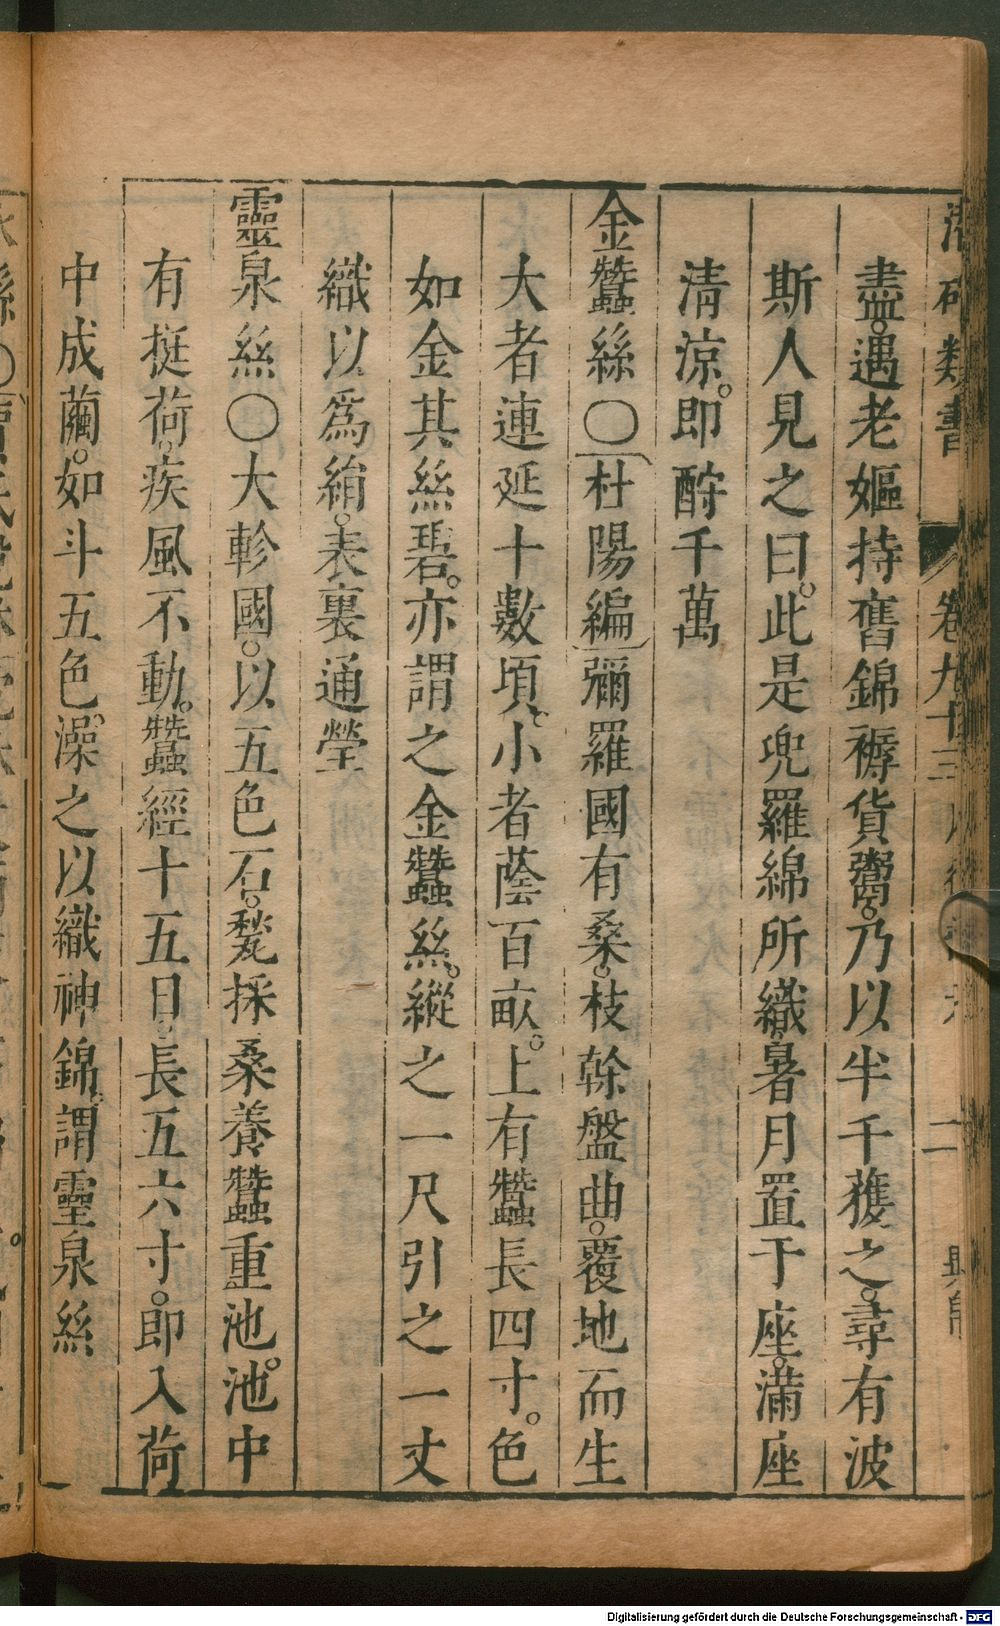 類書 卷九十三 二
盡。遇老嫗持舊錦褥貨鬻。乃以半千獲之。尋有波
斯人見之曰。此是兜羅綿所織。暑月置于座。滿座
清涼。即酧千萬
金蠶絲〇杜陽編彌羅國有桑。枝幹盤曲。覆地而生
大者連延十數頃。小者蔭百畝。上有蠶長四寸。色
如金其絲碧。亦謂之金蠶絲。縱之一尺引之一丈
織以爲絹。表裏通瑩
靈泉絲〇大軫國。以五色石。甃採桑養蠶重池池中
有挺荷。疾風不動。蠶經十五日。長五六寸。即入荷
中成繭。如斗五色。澡之以織神錦。謂靈泉絲
Digitalisierung gefördert durch die Deutsche Forschungsgemeinschaft - DFG